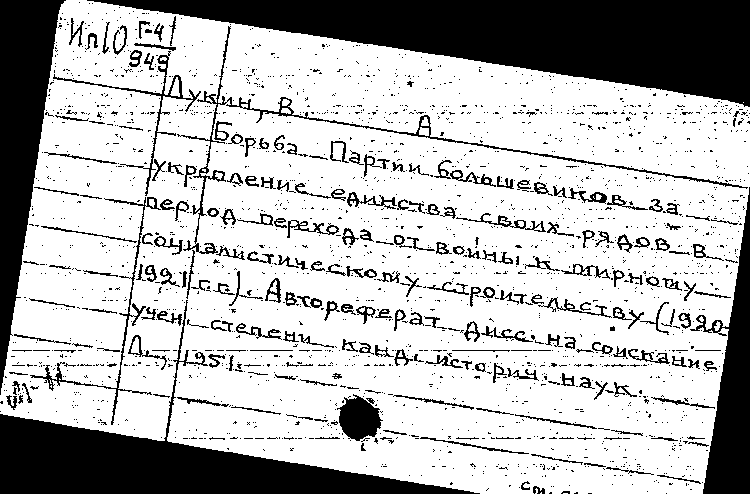 Ип10 Г-4
949
Лукин, В. А.
Борьба Партии большевиков за
укрепление единства своих рядов в
период перехода от войны к мирному
социалистическому строительству (1920-
1921 г.г.). Автореферат дисс. на соискание
учен. степени канд. историч. наук.
Л., 1951.